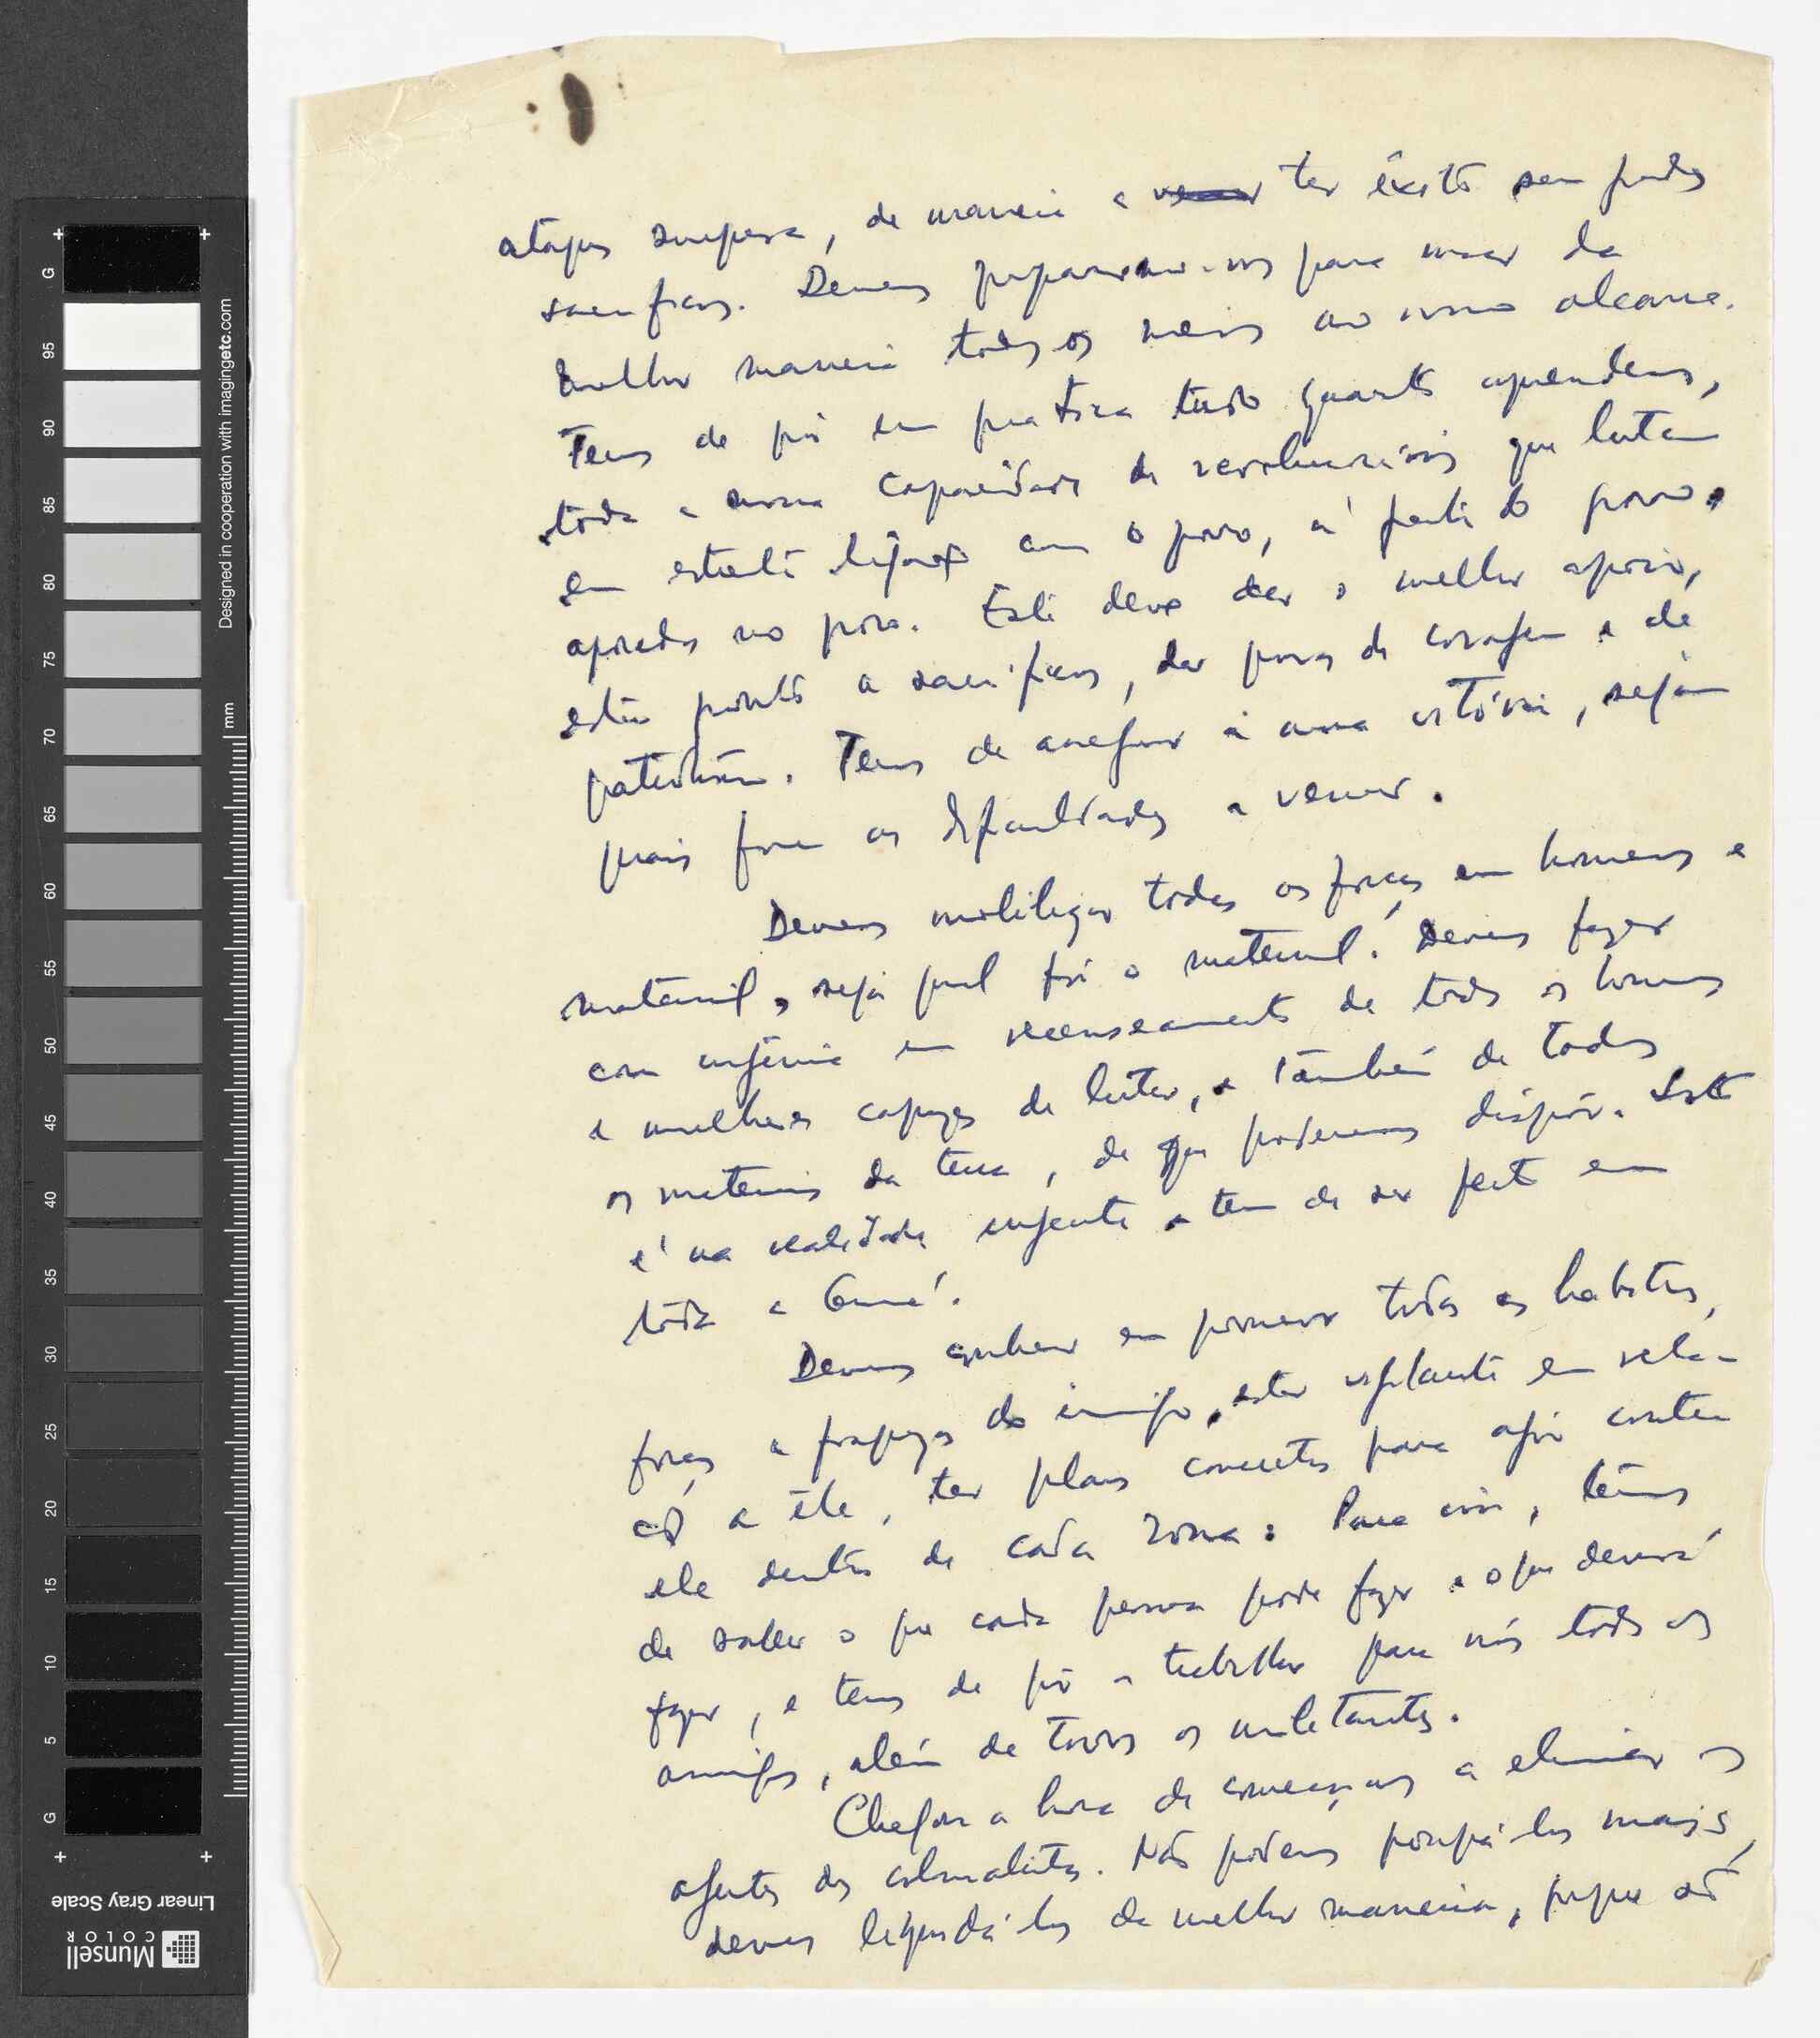 ataques surpresa, de maneira a ter êxito sem grandes
sacrifícios. Devemos prepararmo-nos para usar da
melhor maneira todos os meios ao nosso alcance.
Temos de pôr em prática tudo quanto aprendemos,
toda a nossa capacidade de revolucionários que lutam
em estreita ligação com o povo, à frente do povo,
apoiados no povo. Este deve dar o melhor apoio,
estar pronto a sacrifícios, dar provas de coragem e de
patriotismo. Temos de assegurar a nossa vitória, sejam
quais forem as dificuldades a vencer.
Devemos mobilizar todas as forças em homens e
material, seja qual fôr o material. Devemos fazer
com urgência um recenseamento de todos os homens
e mulheres capazes de lutar, e também de todos
os materiais da terra, de que poderemos dispôr. Isto
é na realidade urgente e tem de ser feito em
toda a Guiné.
Devemos conhecer em pormenor todos os hábitos,
forças e fraquezas do inimigo, estar vigilante em rela-
ção a êle, ter planos concretos para agir contra
ele dentro de cada zona. Para isso, temos
de saber o que cada pessoa pode fazer e o que deverá
fazer, e temos de pôr a trabalhar para nós todos os
amigos, além de todos os militantes.
Chegou a hora de começarmos a eliminar os
agentes dos colonialistas. Não podemos poupá-los mais,
devemos liquidá-los da melhor maneira, porque são
G 95 90 85 80 75 70 65 60 55 50 45 40 35 30 25 20 15 10 5 G
mm
Designed in cooperation with imagingetc.com
Linear Gray Scale
Munsell
COLOR